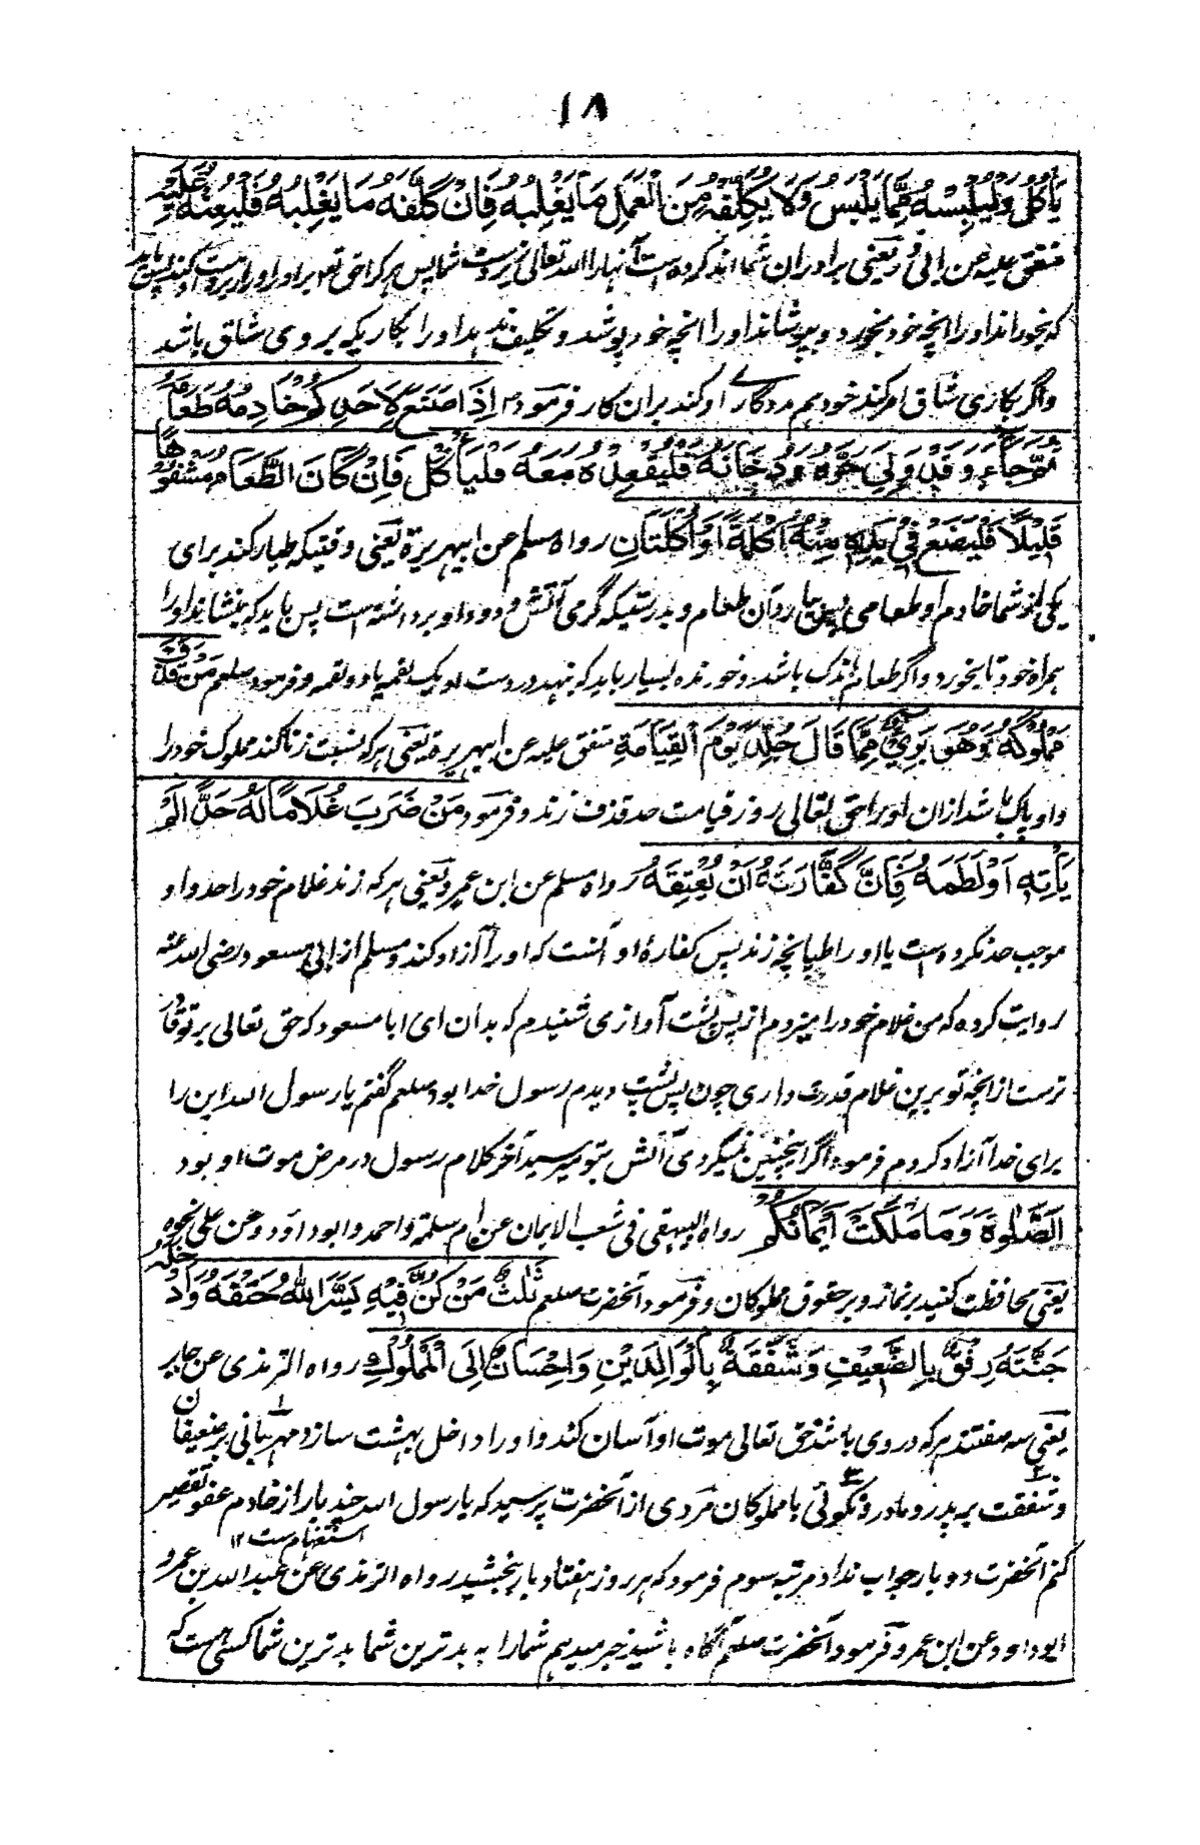 ۱۸
يَأْكُلُ وَلْيُلْبِسْهُ مِمَّا يَلْبَسُ وَلَا يُكَلِّفْهُ مِنَ الْعَمَلِ مَا يَغْلِبُهُ فَاِنْ كَلَّفَهُ مَا يَغْلِبُهُ فَلْيُعِنْهُ عَلَيْهِ
متفق علیه عن ابی ذر یعنی برادران شما اند کرده است آنها را الله تعالی زیردست شما پس هر که را حق تعالی برادر او را زیردست او کند پس باید
که بخوراند او را انچه خود بخورد و بپوشاند او را انچه خود پوشد و تکلیف ندهد او را بکاریکه بر وی شاق باشد
و اگر بکاری شاق امر کند خود هم مددگاری او کند بران کار و فرمود اِذَا صَنَعَ لِاَحَدِكُمْ خَادِمُهُ طَعَامَهُ
ثُمَّ جَاءَهُ وَقَدْ وَلِيَ حَرَّهُ وَدُخَانَهُ فَلْيُقْعِدْهُ مَعَهُ فَلْيَأْكُلْ فَاِنْ كَانَ الطَّعَامُ مَشْفُوْهًا
قَلِيْلًا فَلْيَضَعْ فِيْ يَدِهِ مِنْهُ اُكْلَةً اَوْ اُكْلَتَانِ رواه مسلم عن ابیهریرة یعنی وقتیکه طیار کند برای
یکی از شما خادم او طعامی پس بیارد آن طعام و بدرستیکه گرمی آتش و دود او برداشته است پس باید که بنشاند او را
همراه خود تا بخورد و اگر طعام اندک باشد و خورنده بسیار باید که بنهد در دست او یک لقمه یا دو لقمه و فرمود صلعم مَنْ قَذَفَ
مَمْلُوْكَهُ وَهُوَ بَرِيْءٌ مِمَّا قَالَ جُلِدَ يَوْمَ الْقِيَامَةِ متفق علیه عن ابیهریرة یعنی هر که نسبت زنا کند مملوک خود را
و او پاک باشد از ان او را حق تعالی روز قیامت حد قذف زند و فرمود مَنْ ضَرَبَ غُلَامًا لَهُ حَدًّا لَمْ
يَأْتِهِ اَوْ لَطَمَهُ فَاِنَّ كَفَّارَتَهُ اَنْ يُعْتِقَهُ رواه مسلم عن ابن عمر یعنی هر که زند غلام خود را حد و او
موجب حد نکرده است یا او را طپانچه زند پس کفارهٔ او آنست که او را آزاد کند و مسلم از ابی مسعود رضی الله عنه
روایت کرده که من غلام خود را میزدم از پس پشت آوازی شنیدم که بدان ای ابا مسعود که حق تعالی بر تو قادر
ترست از انچه تو برین غلام قدرت داری چون پس پشت دیدم رسول خدا بود صلعم گفتم یا رسول الله این را
برای خدا آزاد کردم فرمود اگر اینچنین نمیکردی آتش بتو میرسید آخر کلام رسول در مرض موت او بود
اَلصَّلٰوةَ وَمَا مَلَكَتْ اَيْمَانُكُمْ رواه البیهقی فی شعب الایمان عن ام سلمة و احمد و ابو داؤد و عن علی نحوه
یعنی محافظت کنید بر نماز و بر حقوق مملوکان و فرمود آنحضرت صلعم ثَلٰثٌ مَنْ كُنَّ فِيْهِ يَسَّرَ اللّٰهُ حَتْفَهُ وَاَدْخَلَهُ
جَنَّتَهُ رِفْقٌ بِالضَّعِيْفِ وَشَفَقَةٌ بِالْوَالِدَيْنِ وَاِحْسَانٌ اِلَى الْمَمْلُوْكِ رواه الترمذی عن جابر
یعنی سه صفتند هر که در وی باشد حق تعالی موت او آسان کند و او را داخل بهشت سازد مهربانی بر ضعیفان
و شفقت بر پدر و مادر و نیکوئی با مملوکان مردی از آنحضرت پرسید که یا رسول الله چند بار از خادم عفو تقصیر
استفهام ست ۱۲
کنم آنحضرت دو بار جواب نداد مرتبه سوم فرمود که هر روز هفتاد بار بخشید رواه الترمذی عن عبدالله بن عمرو
ابو داود عن ابن عمر و فرمود آنحضرت صلعم آگاه باشید خبر میدهم شما را به بدترین شما بدترین شما کسی است که